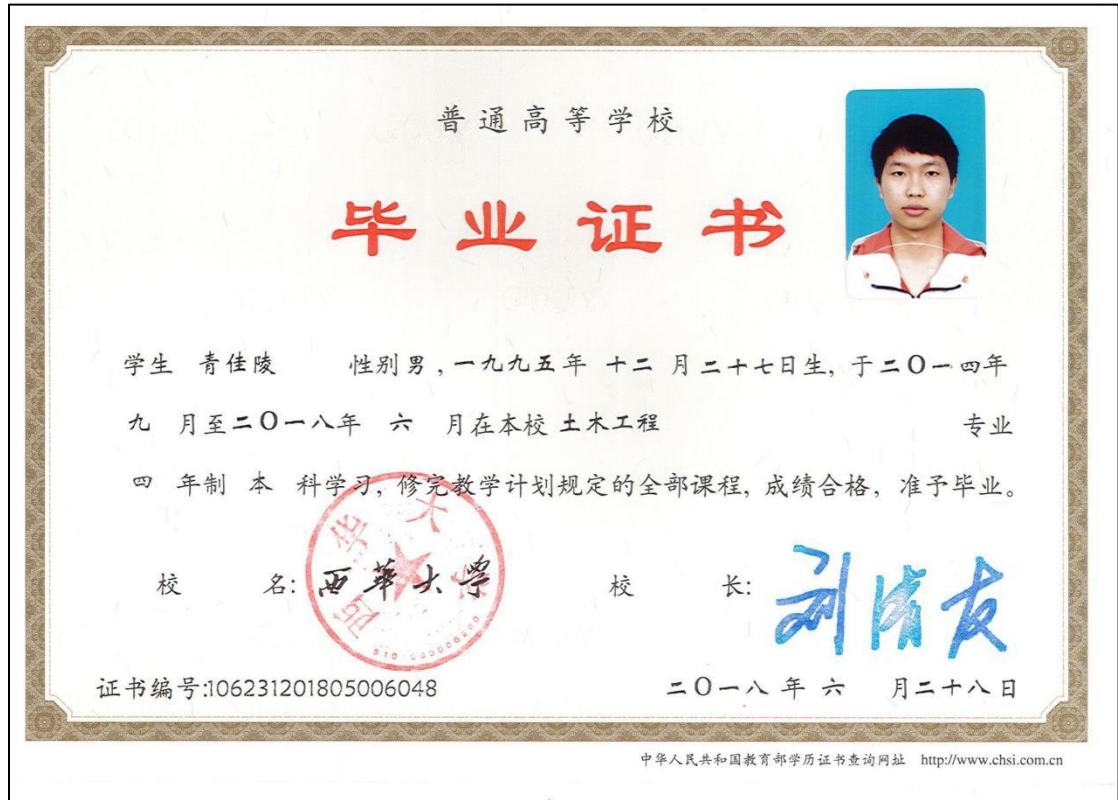 普通高等学校
毕业证书
学生 青佳陵 性别男,一九九五年 十二 月二十七日生,于二〇一四年
九 月至二〇一八年 六 月在本校 土木工程 专业
四 年制 本 科学习,修完教学计划规定的全部课程,成绩合格,准予毕业。
校 名: 西華大学 校 长: 刘清友
西华大学
证书编号:106231201805006048 二〇一八 年 六 月二十八日
中华人民共和国教育部学历证书查询网址 http://www.chsi.com.cn